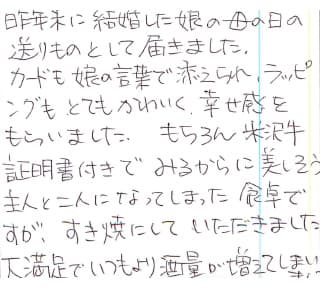 昨年末に結婚した娘の母の日の
送りものとして届きました。
カードも娘の言葉で添えられ、ラッピ
ングもとてもかわいく、幸せ感を
もらいました。もちろん米沢牛
証明書付きでみるからに美しそう
主人と二人になってしまった食卓で
すが、すき焼にしていただきました
大満足でいつもより酒量が増えてしまい